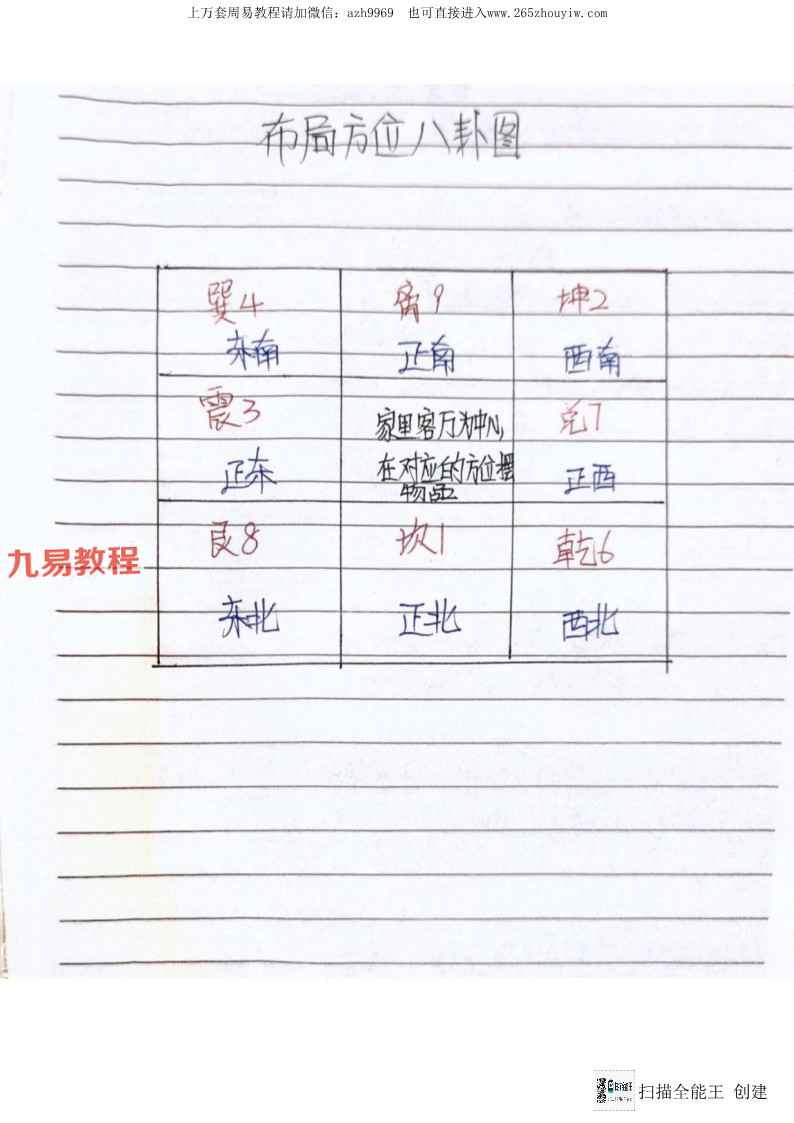 上万套周易教程请加微信：azh9969 也可直接进入www.265zhouyiw.com
布局方位八卦图
巽4 离9 坤2
东南 正南 西南
震3 家里客厅为中心, 兑7
正东 在对应的方位摆 正西
物品
艮8 坎1 乾6
九易教程
东北 正北 西北
扫描全能王 创建